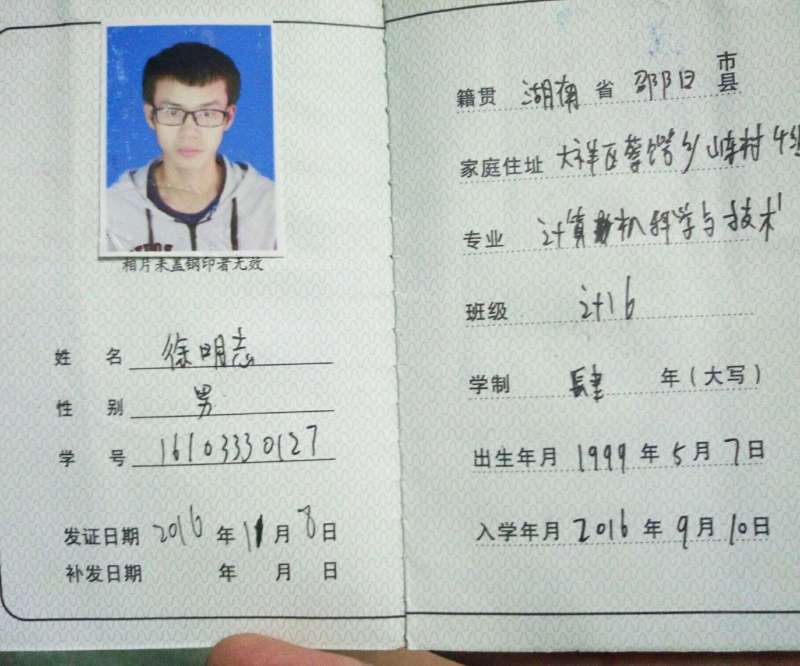 相片未盖钢印者无效
姓 名 徐明志
性 别 男
学 号 16103330127
发证日期 2016 年 11 月 8 日
补发日期 年 月 日
籍贯 湖南 省 邵阳 市县
家庭住址 大祥区 乡 村 4组
专业 计算机科学与技术
班级 计16
学制 肆 年(大写)
出生年月 1999 年 5 月 7 日
入学年月 2016 年 9 月 10 日